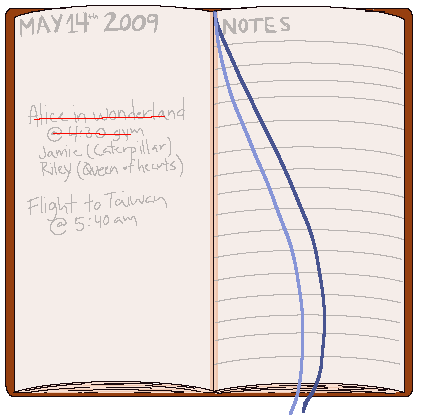 MAY 14th 2009
Alice in wonderland
@ 4:30 gym
Jamie (Caterpillar)
Riley (Queen of hearts)
Flight to Taiwan
@ 5:40 am
NOTES